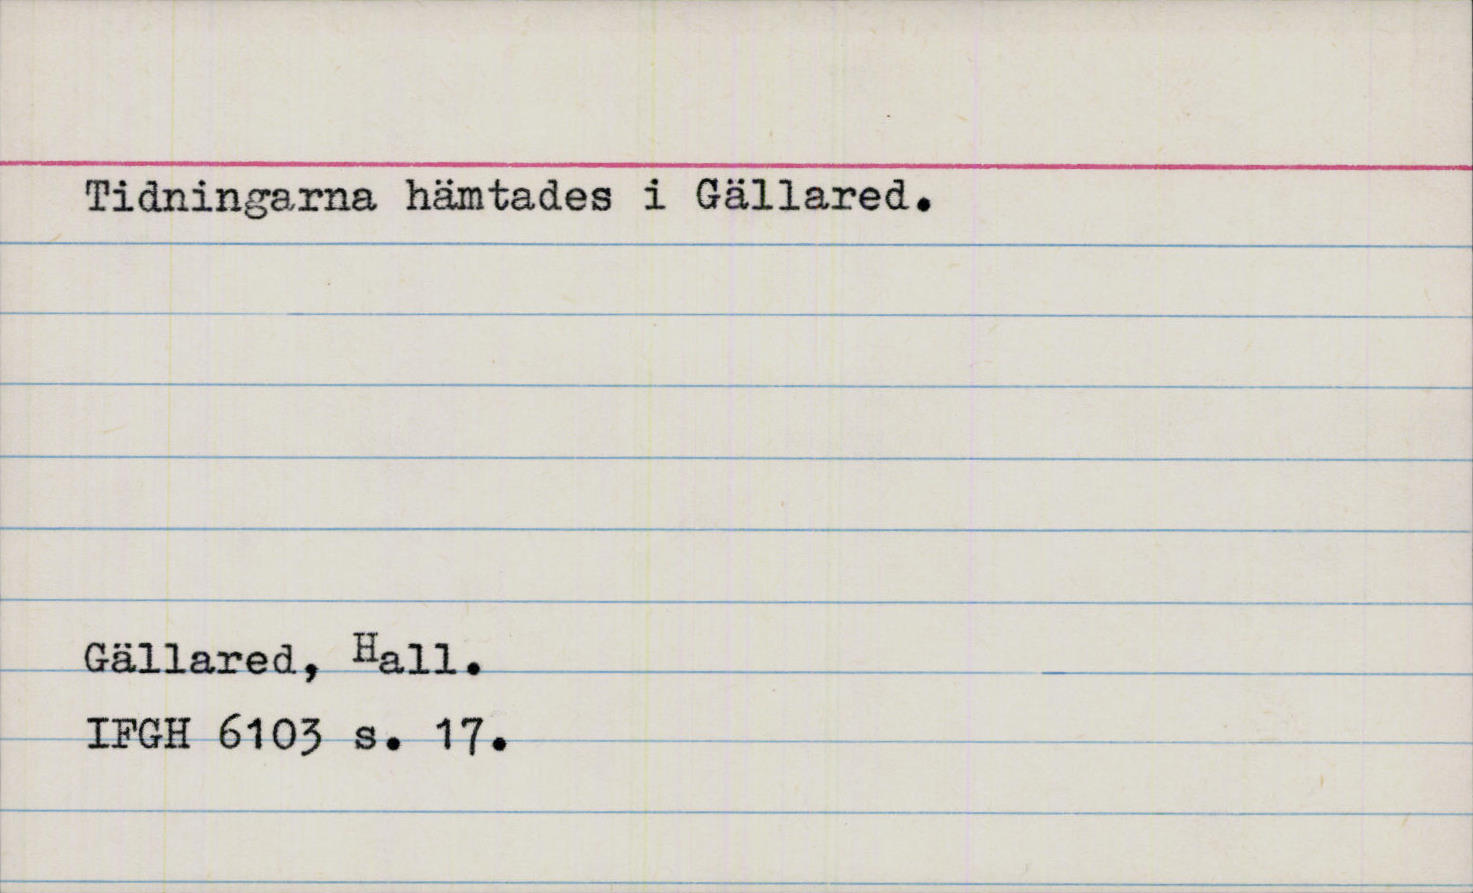 Tidningarna hämtades i Gällared.
Gällared, Hall.
IFGH 6103 s. 17.